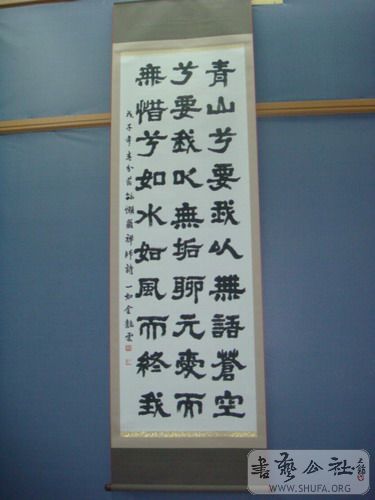 青山兮要我以無語蒼空
兮要我以無垢聊无愛而
無惜兮如水如風而終我
戊子年春分節 懶翁禪師詩 一如金
書藝公社
WWW.SHUFA.ORG